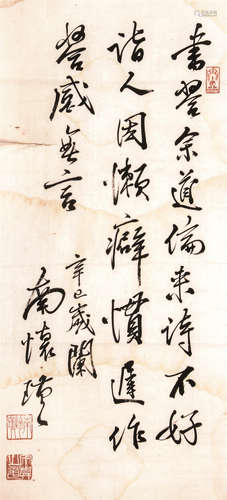 書 余道偏来詩不好
詣人因懶癖慣遲作
感無言
辛巳歲闌
南懷瑾